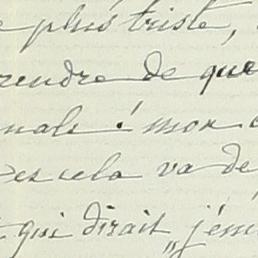 plus triste,
rendre de que
mals ! mon
cela va de
qui dirait „j'ém